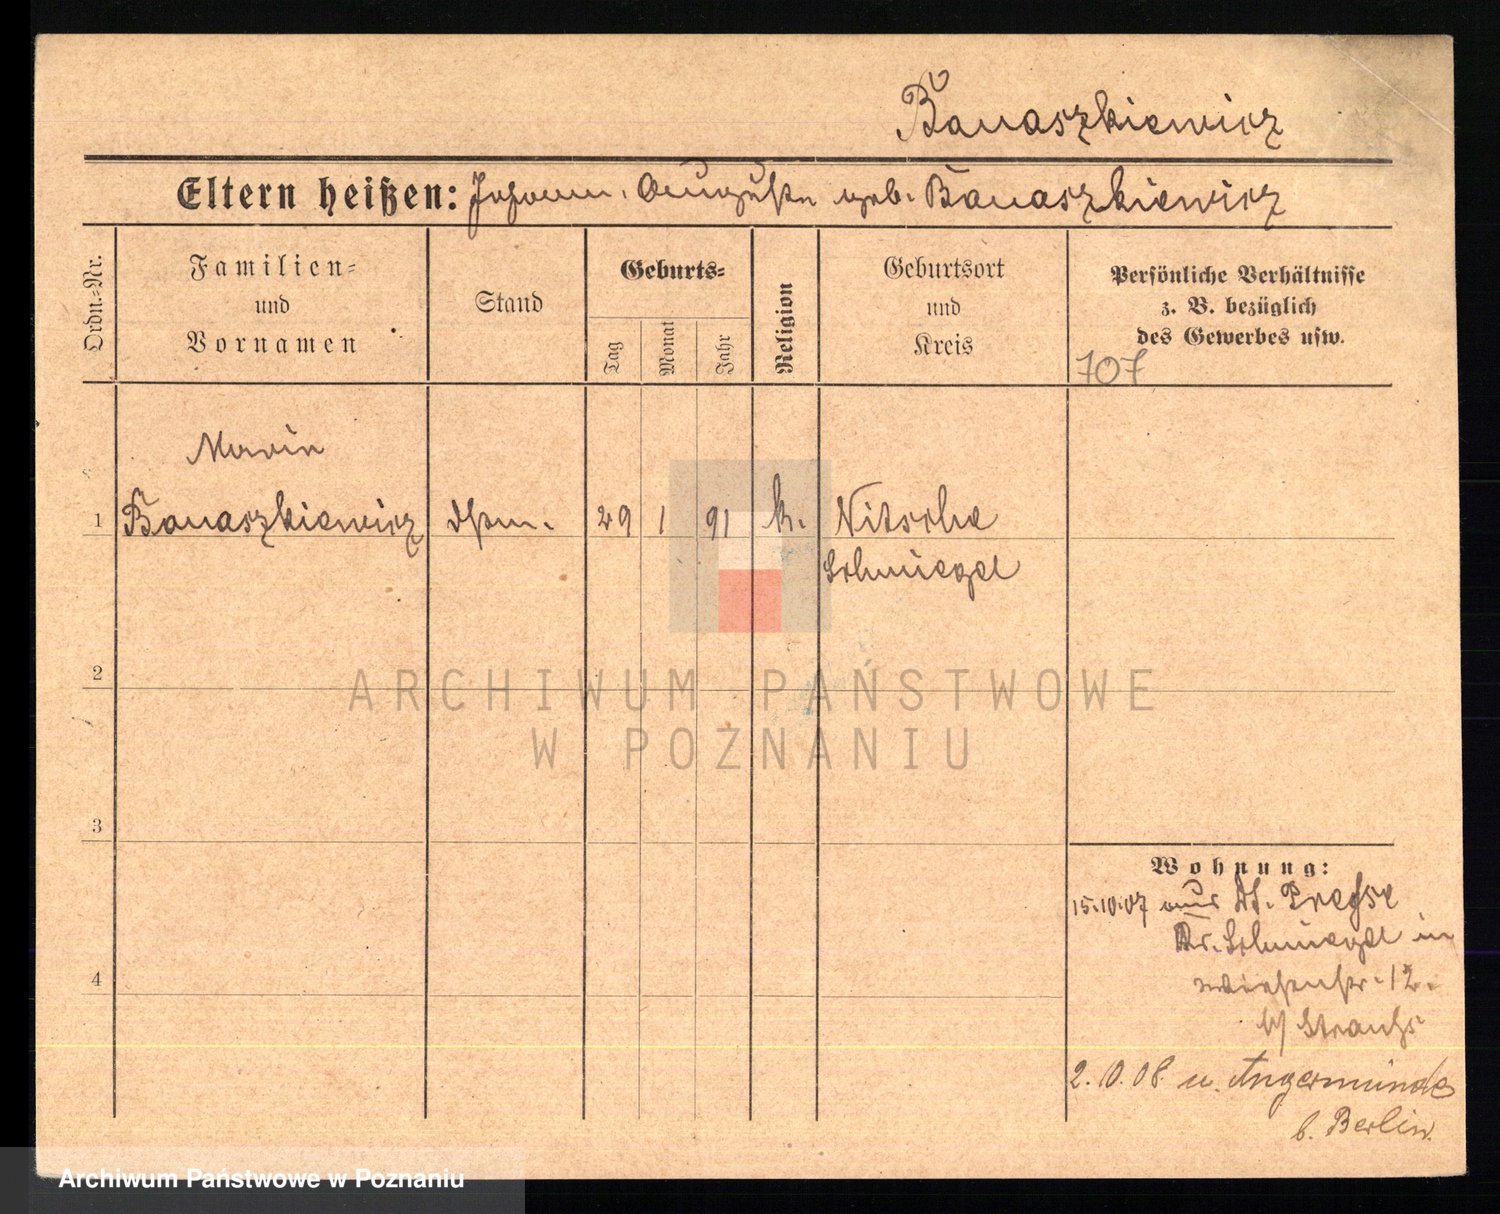 Banaszkiewicz
Eltern heißen: Johann. Auguste geb. Banaszkiewicz
Ordn.-Nr.
Familien-
und
Vornamen
Stand
Geburts-
Tag
Monat
Jahr
Religion
Geburtsort
und
Kreis
Persönliche Verhältnisse
z. B. bezüglich
des Gewerbes usw.
707
Marie
1 Banaszkiewicz 29 1 91 k. Nitsche
Schmiegel
2
3
4
ARCHIWUM PAŃSTWOWE
W POZNANIU
Wohnung:
15.10.07 aus Dt. Presse
Kr. Schmiegel in
Wiesenstr. 12.
b/ Strauss
2.10.08 n. Angermünde
b. Berlin.
Archiwum Państwowe w Poznaniu